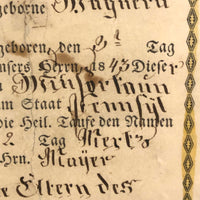 geborne Wagnern
geboren, den 3th Tag
unsers Herrn 1843 Dieser
im Staat Pennsyl
die Heil. Taufe den Namen
2. Tag Mertz
Hrn. Mayer
e Eltern des